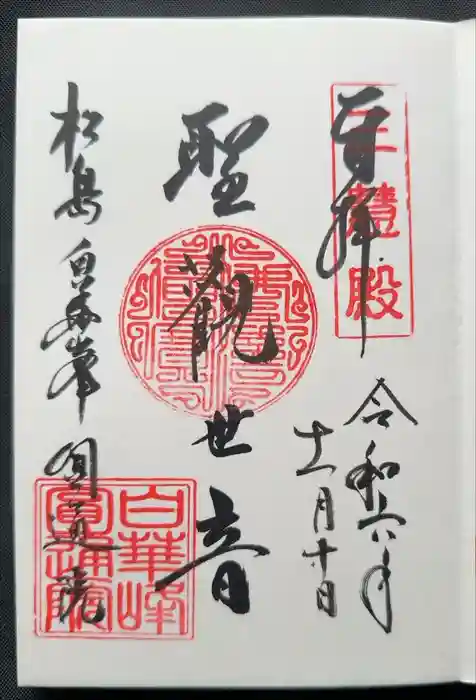 奉拝
三慧殿
令和六年
十一月十日
聖観世音
松島 白華峯 圓通院
白華峰
圓通院